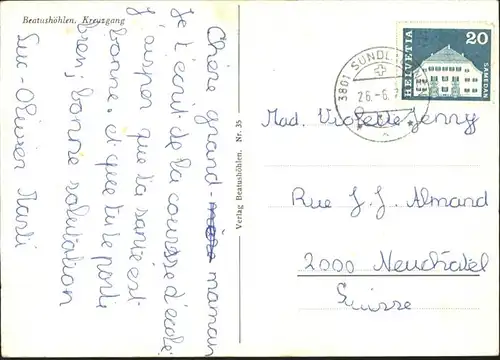 Beatushöhlen. Kreuzgang
Chère grand-mère maman
Je t'écrit de la coursse d'école;
j'ausper que ta santé est
bonne. et que tu te porte
bien; bonne salutation
Luc-Olivier Marti
Verlag Beatushöhlen. Nr. 35
HELVETIA
20
SAMEDAN
3801 SUNDL
26.-6.
Mad. Violette Jenny
Rue J. J. Almand
2000 Neuchâtel
Suisse